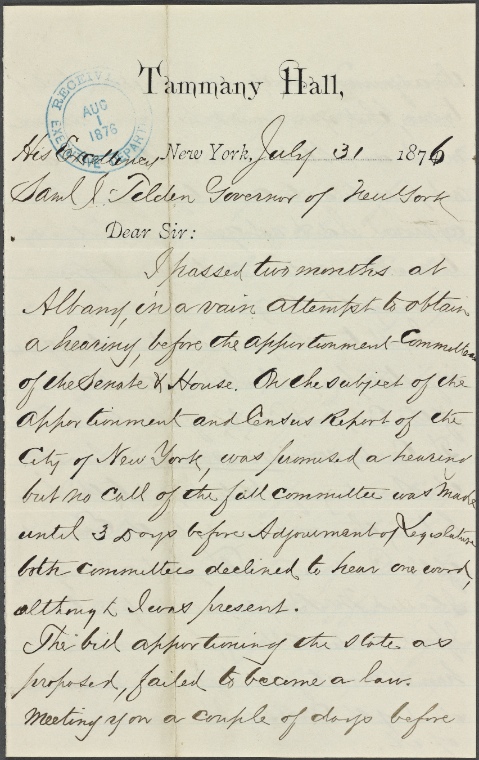 Tammany Hall,
RECEIVED
AUG
1
1876
EXECUTIVE DEPARTMENT
His Excellency New York, July 31 1876
Saml J. Tilden Governor of New York
Dear Sir:
I passed two months at
Albany, in a vain attempt to obtain
a hearing, before the apportionment Committees
of the Senate & House. On the subject of the
apportionment and Census Report of the
City of New York, was promised a hearing
but no call of the full committee was made
until 3 Days before Adjournment of Legislature
both committees declined to hear one word,
although I was present.
The bill apportioning the state as
proposed, failed to become a law.
Meeting you a couple of days before